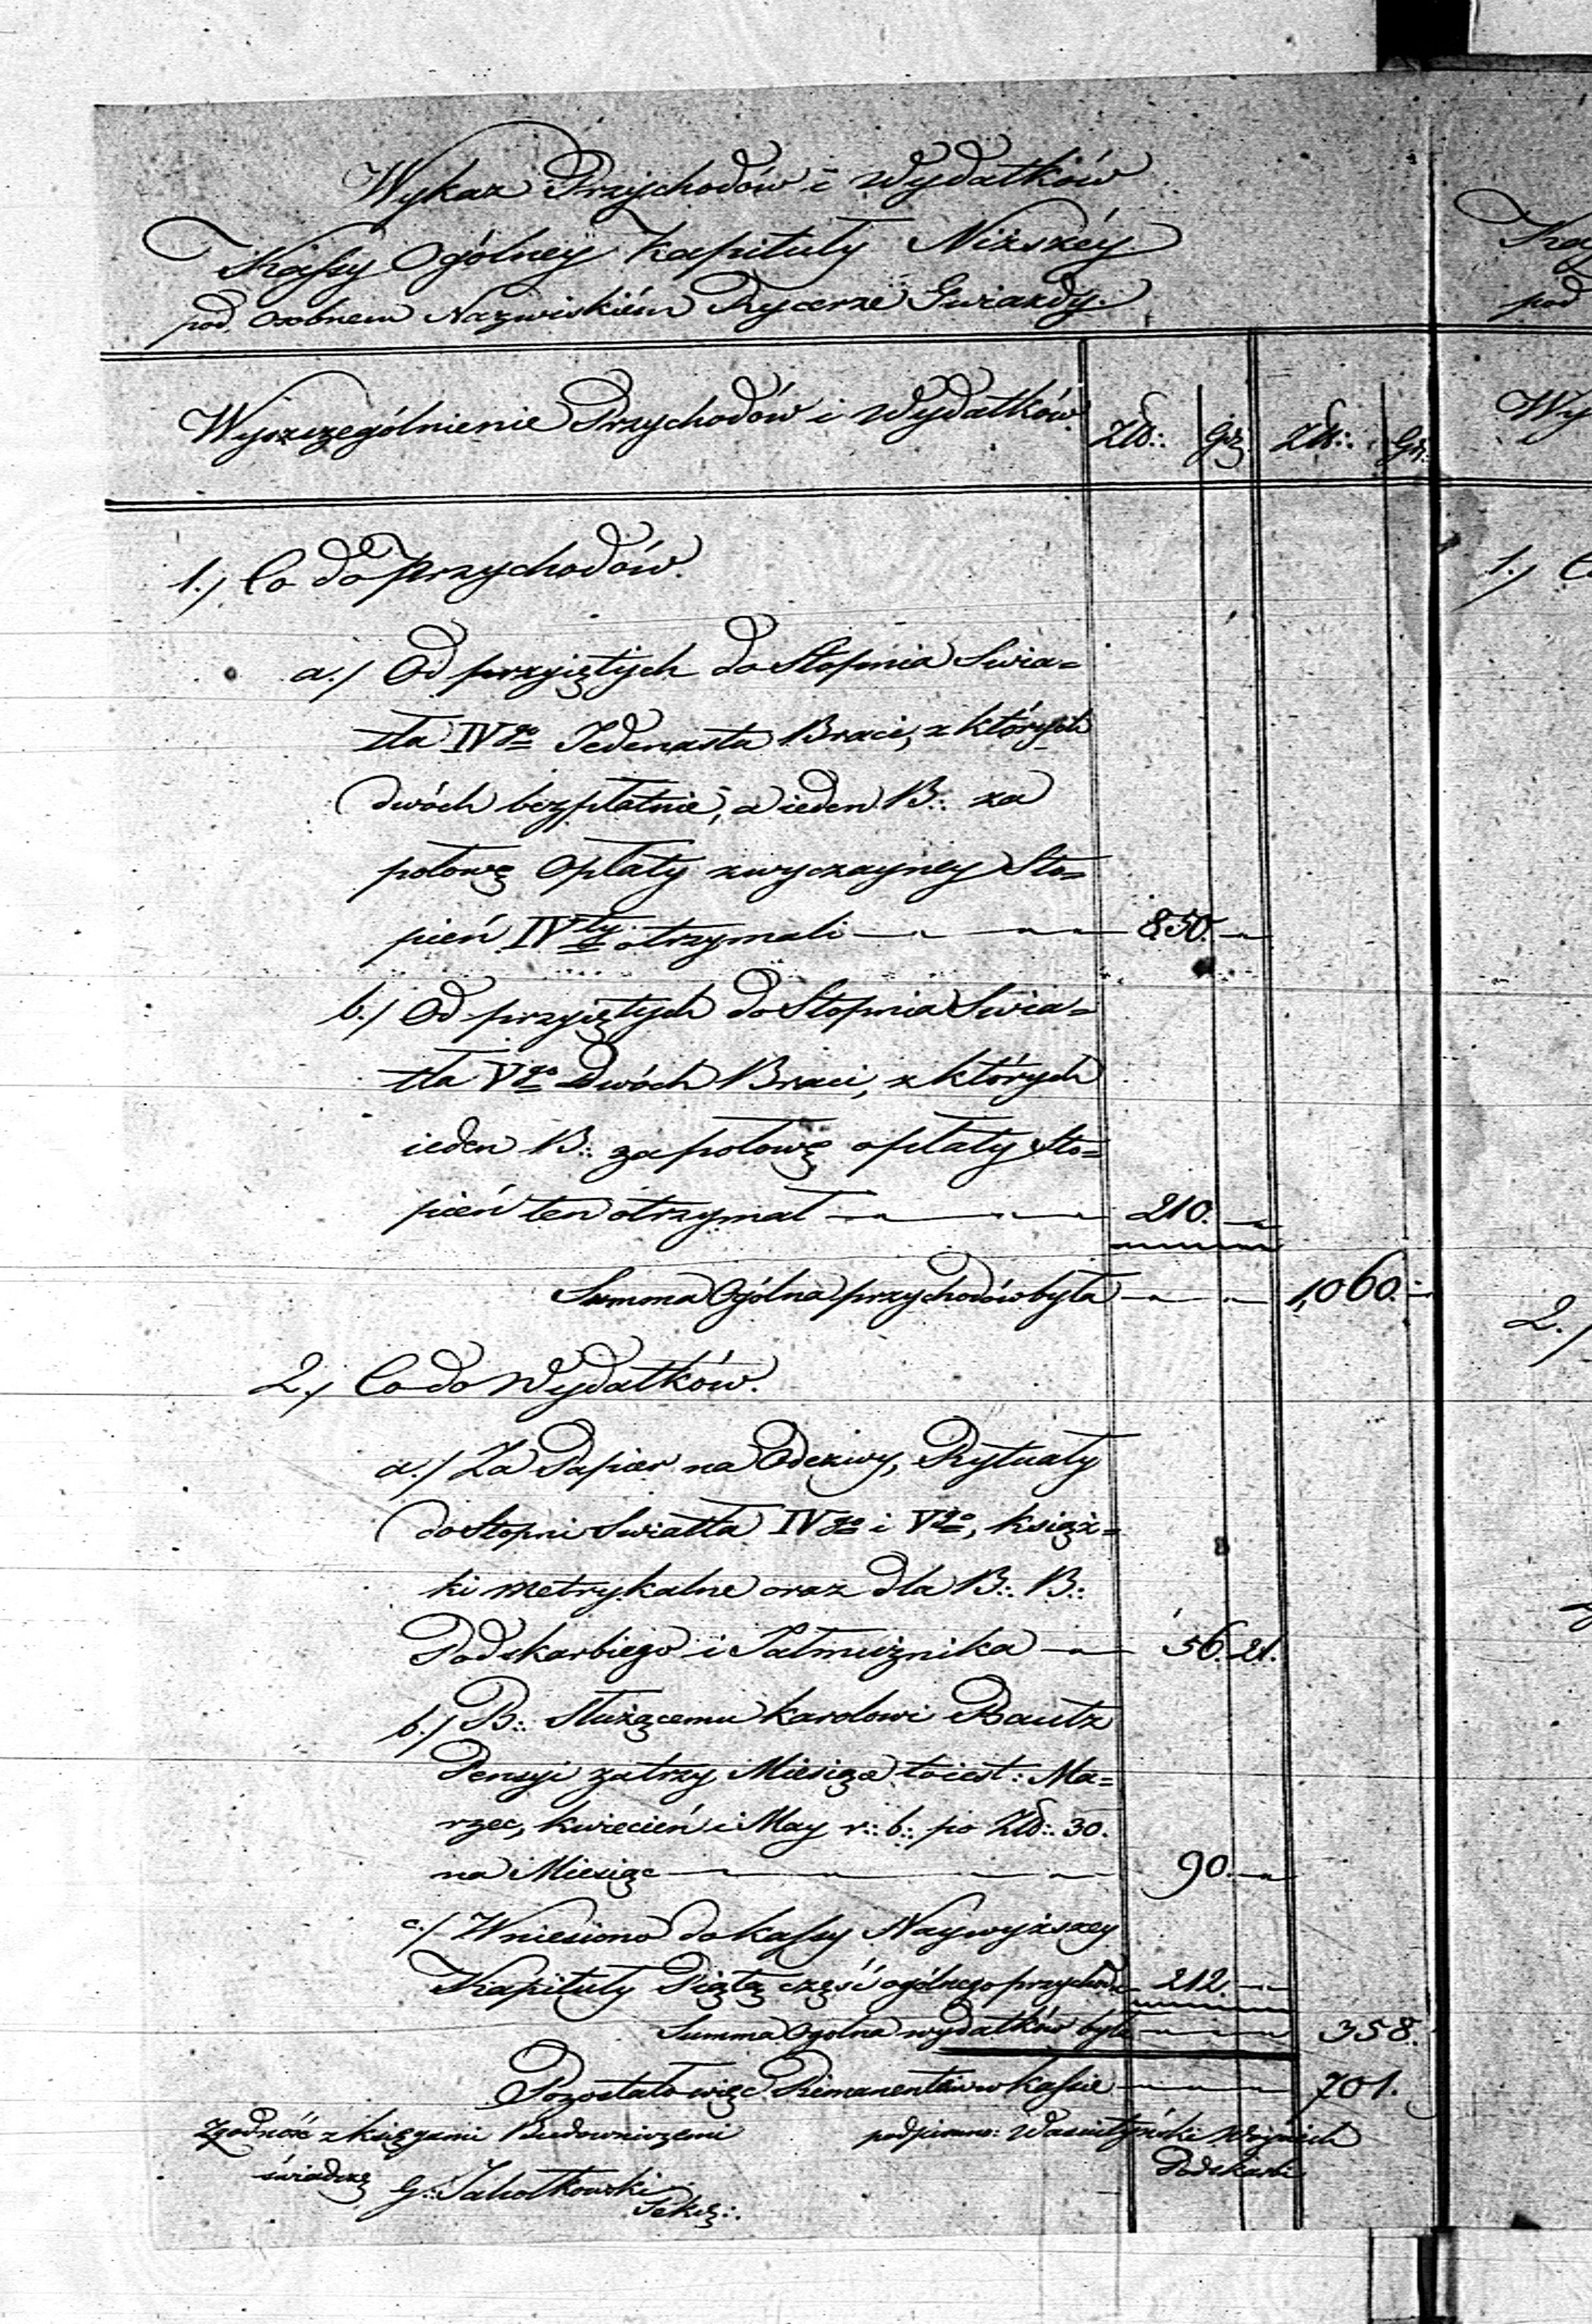 Wykaz Przychodów i Wydatków
Kassy Ogólney Kapituły Niższéy
pod Osobnem Nazwiskiém Rycerze Gwiazdy.
Wyszczególnienie Przychodów i Wydatków. Złł:. Gr. Złł:. Gr.
1./ Co do Przychodów.
a./ Od przyiętych do Stopnia Swia=
tła IVgo Jedenastu Braci, z których
dwóch bezpłatnie, a ieden B:. za
połowę Opłaty zwyczayney Sto=
pień IVty otrzymali 850.
b./ Od przyiętych do Stopnia Swia=
tła Vgo Dwóch Braci, z których
ieden B:. za połowę opłaty Sto=
pień ten otrzymał 210.
Summa Ogólna przychodów była 1,060.
2./ Co do Wydatków.
a./ Za Papier na Odezwy, Rytuały
do Stopni Swiatła IVgo i Vgo, książ=
ki metrykalne oraz dla B:. B:.
Podskarbiego i Jałmużnika 56. 21.
b./ B:. Służącemu Karolowi Bautz
Pensyi za trzy Miesiące to iest: Ma=
rzec, Kwiecień i May r:. b:. po Złł:. 30.
na Miesiąc 90.
c./ Wniesiono do Kassy Naywyższey
Kapituły Piątą część ogólnego przychodu 212.
Summa Ogólna wydatków była 358.
Pozostało więc Rimanentem w Kassie 701.
Zgodność z księgami Budowniczemi podpisano:
świadczę Podskarbi
G:.
Sekr:.